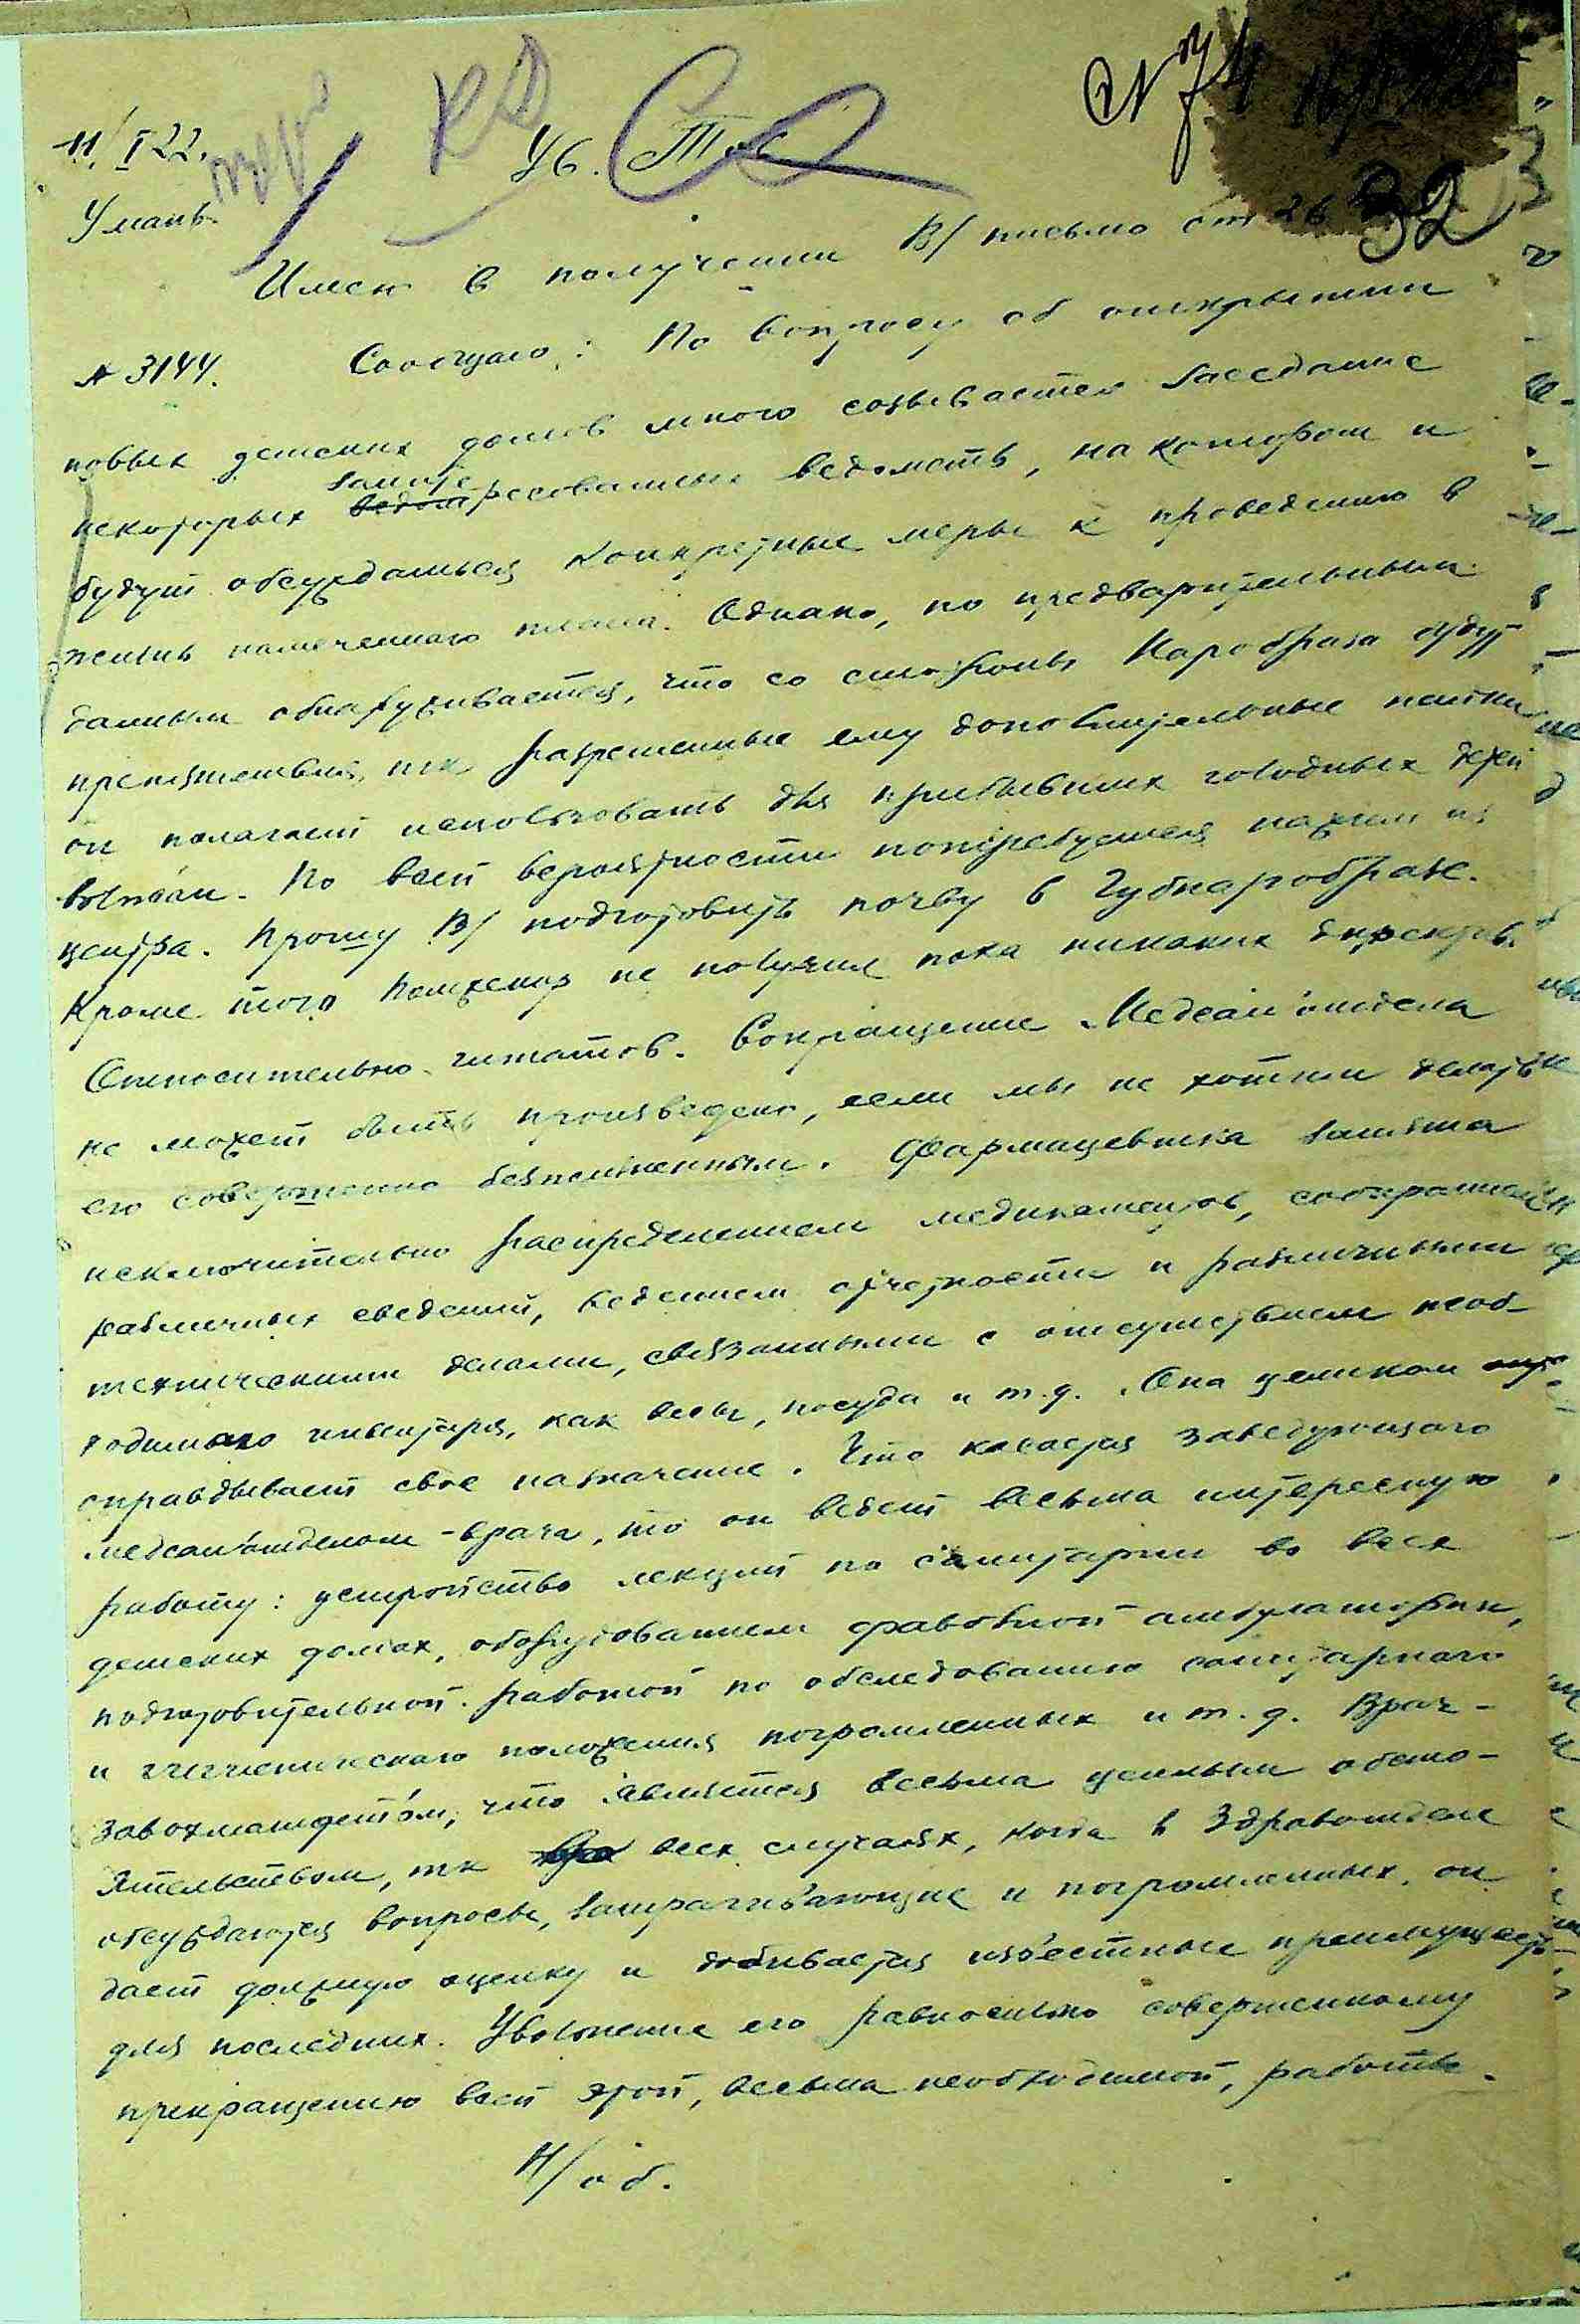 11/I 22.
Умань.
КД
Ув. Тов.
№ 74
32
Имею в получении В/ письмо от 26
№ 3144. Сообщаю: По вопросу об открытии
новых детских домов мною созывается заседание
некоторых заинтересованных ведомств, на котором и
будут обсуждаться конкретные меры к проведению в
жизнь намеченного плана. Однако, по предварительным
данным обнаруживается, что со стороны Наробраза будут
препятствия, тк разрешенные ему дополнительные пайки
он полагает использовать для прибывших голодных детей
волжан. По всей вероятности потребуется нажим из
центра. Прошу В/ подготовить почву в Губнаробразе.
Кроме того не получил пока никаких директив.
Относительно штатов. Сокращение Медсан'отдела
не может быть произведено, если мы не хотим делать
его совершенно безжизненным. Фармацевтка занята
исключительно распределением медикаментов, собиранием
различных сведений, ведением отчетности и различными
техническими делами, связанными с отсутствием необ-
ходимого инвентаря, как весы, посуда и т.д. Она целиком
оправдывает свое назначение. Что касается заведующего
медсан'отделом - врача, то он ведет весьма интересную
работу: устройство лекций по санитарии во всех
детских домах, оборудованием образцовой амбулатории,
подготовительной работой по обследованию санитарного
и гигиенического положения погромленных и т.д. Врач -
завохматдетом, что является весьма ценным обсто-
ятельством, тк во всех случаях, когда в Здравотделе
обсуждаются вопросы, затрагивающие и погромленных, он
дает должную оценку и добивается известных преимуществ
для последних. Увольнение его равносильно совершенному
прекращению всей этой, весьма необходимой, работы.
Н/об.